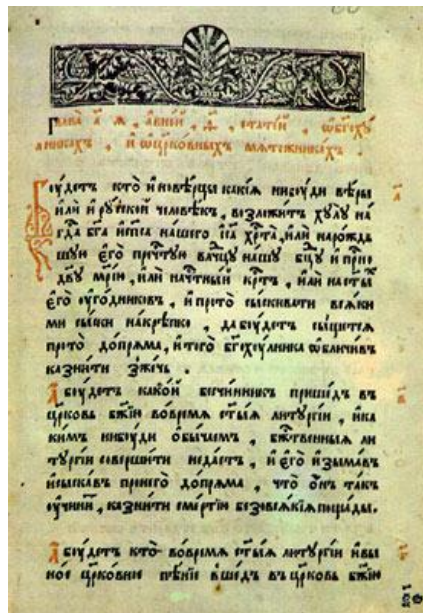 Глава а҃ я҃, а҆ вне́й, д҃, статїи҆, ѡ҆бг҃оху
лникахъ, и҆ ѡ҆цр҃ковныхъ мяте́жникахъ.
Боу́детъ кто̀ и҆нове́рцы какїя нибоу́ди ве́ры
и҆лѝ и҆ ру́ской человѣ́къ, возложи́тъ хулу̀ на́
гдⷭ҇а бг҃а и҆ сп҃са нашего і҆с҃а хрⷭ҇та̀, и҆лѝ наро́жд
шую е҆го̀ пречⷭ҇тую влⷣчцу на́шу бцⷣу и҆ прⷭ҇но
дв҃у мр҃і́ю, и҆лѝ начⷭ҇тны́й крⷭ҇тъ, и҆лѝ настⷯы́
е҆го̀ оу҆го́дниковъ, и҆ прото̀ сы́скивати вся́ки
ми сы́ски на́крѣпко, да боу́детъ сы́щется
прото̀ до́пряма, и҆ того̀ бг҃охоу́лника ѡ҆бличи́въ
казни́ти зже́чь.
А҆ боу́детъ како́й безчи́нникъ прише́дъ въ
цр҃ковь бж҃їю во́время ст҃ы́я литургі́и, и҆ ка
ки́мъ нибоу́ди ѡ҆бы́чаемъ, бжⷭ҇твенныя ли
тургі́и соверши́ти неда́стъ, и҆ е҆го̀ и҆зыма́въ
и҆ сыска́въ пронего̀ до́пряма, что̀ ѡ҆нъ та́къ
оу҆чини́т, казни́ти сме́ртїю безовся́кїя поща́ды.
А҆ боу́детъ кто̀ во́время ст҃ы́я литургі́и и҆ вы
но́е цр҃ко́вное пѣ́нїе вше́дъ въ цр҃ковь бж҃їю